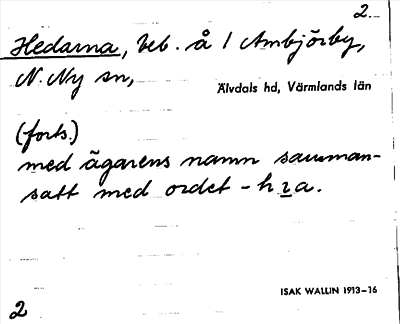 2.
Hedarna, beb. å 1 Ambjörby,
N. Ny sn,
Älvdals hd, Värmlands län
(forts.)
med ägarens namn samman-
satt med ordet -hꞅa.
ISAK WALLIN 1913-16
2